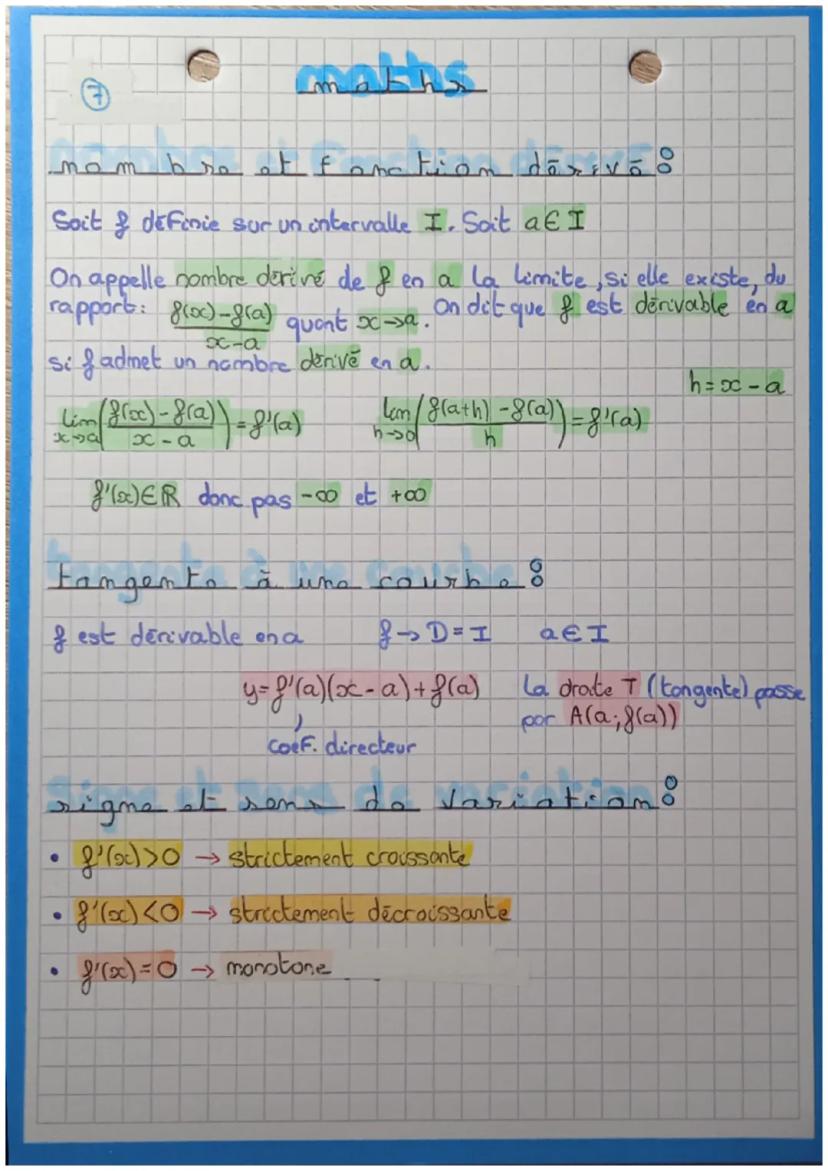 7
maths
nombre et fonction dérivé :
Soit f définie sur un intervalle I. Soit a ∈ I
On appelle nombre dérivé de f en a la limite, si elle existe, du
rapport : (f(x)-f(a))/(x-a) quant x→a. On dit que f est dérivable en a
si f admet un nombre dérivé en a.
h = x - a
lim x→a ((f(x)-f(a))/(x-a)) = f'(a) lim h→0 ((f(a+h)-f(a))/h) = f'(a)
f'(x) ∈ ℝ donc pas -∞ et +∞
tangente à une courbe :
f est dérivable en a f → D = I a ∈ I
y = f'(a)(x - a) + f(a) la droite T (tangente) passe
par A(a; f(a))
coef. directeur
signe et sens de variation :
• f'(x) > 0 → strictement croissante
• f'(x) < 0 → strictement décroissante
• f'(x) = 0 → monotone